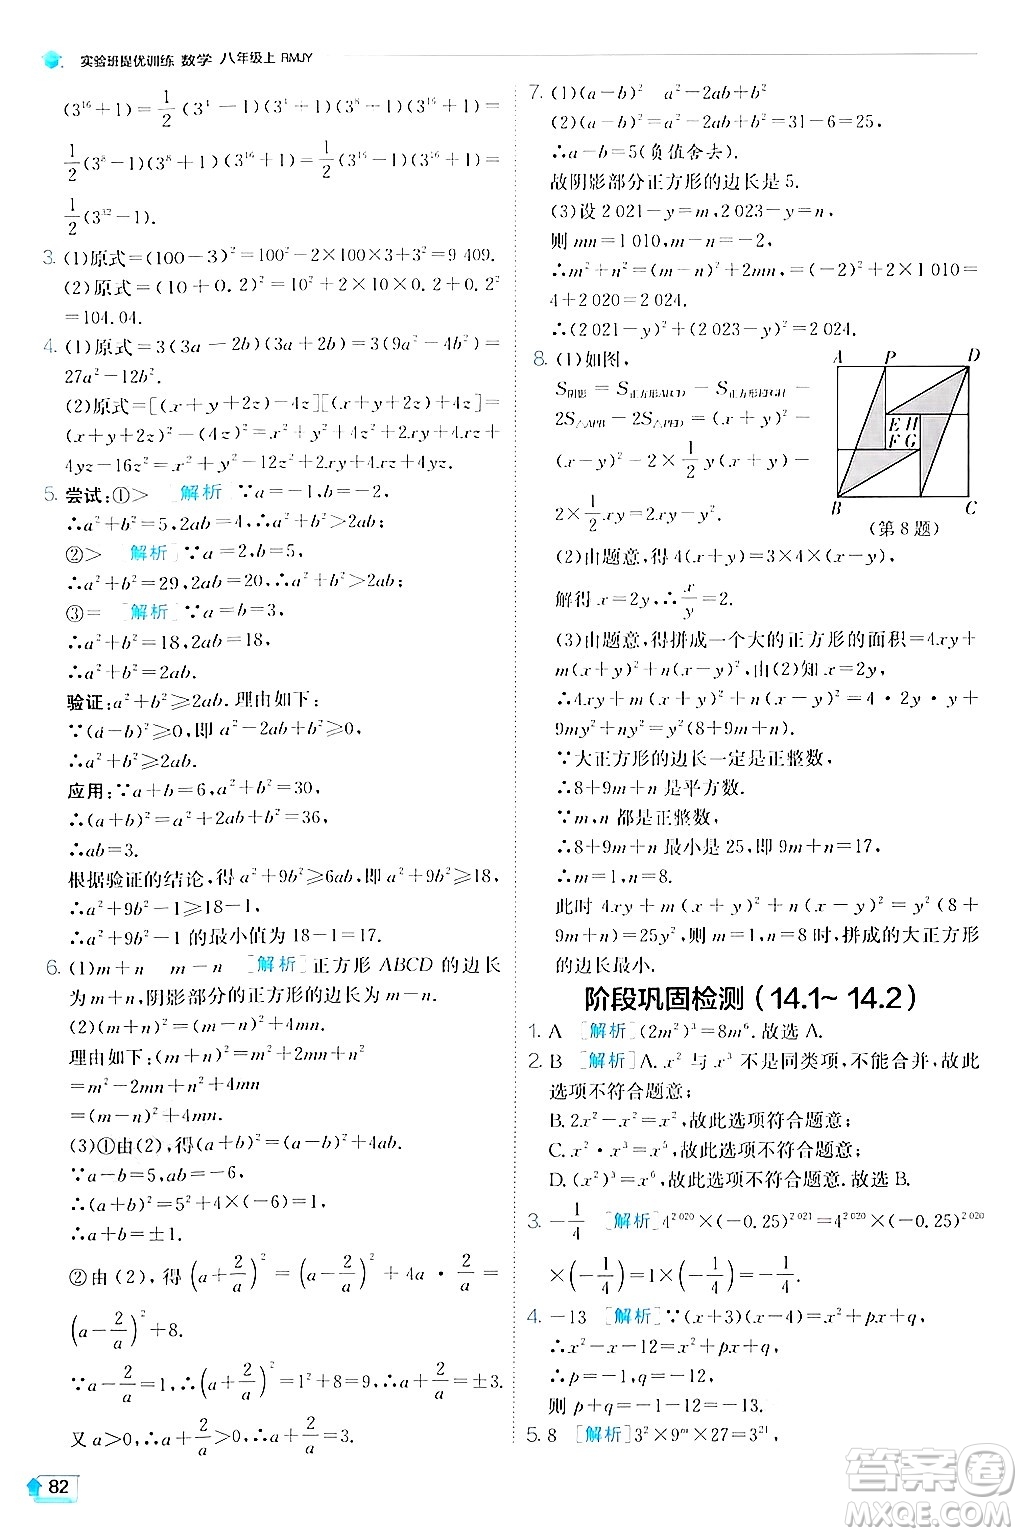 实验班提优训练 数学 八年级上 RMJY
(3¹⁶+1)=1/2(3⁴−1)(3⁴+1)(3⁸+1)(3¹⁶+1)=
1/2(3⁸−1)(3⁸+1)(3¹⁶+1)=1/2(3¹⁶−1)(3¹⁶+1)=
1/2(3³²−1).
3. (1)原式=(100−3)²=100²−2×100×3+3²=9 409.
(2)原式=(10+0.2)²=10²+2×10×0.2+0.2²
=104.04.
4. (1)原式=3(3a−2b)(3a+2b)=3(9a²−4b²)=
27a²−12b².
(2)原式=[(x+y+2z)−4z][(x+y+2z)+4z]=
(x+y+2z)²−(4z)²=x²+y²+4z²+2xy+4xz+
4yz−16z²=x²+y²−12z²+2xy+4xz+4yz.
5. 尝试:①> [解析]∵a=−1,b=−2,
∴a²+b²=5,2ab=4,∴a²+b²>2ab;
②> [解析]∵a=2,b=5,
∴a²+b²=29,2ab=20,∴a²+b²>2ab;
③= [解析]∵a=b=3,
∴a²+b²=18,2ab=18,
∴a²+b²=2ab.
验证:a²+b²⩾2ab.理由如下:
∵(a−b)²⩾0,即a²−2ab+b²⩾0,
∴a²+b²⩾2ab.
应用:∵a+b=6,a²+b²=30,
∴(a+b)²=a²+2ab+b²=36,
∴ab=3.
根据验证的结论,得a²+9b²⩾6ab,即a²+9b²⩾18,
∴a²+9b²−1⩾18−1,
∴a²+9b²−1的最小值为18−1=17.
6. (1)m+n m−n [解析]正方形ABCD的边长
为m+n,阴影部分的正方形的边长为m−n.
(2)(m+n)²=(m−n)²+4mn.
理由如下:(m+n)²=m²+2mn+n²
=m²−2mn+n²+4mn
=(m−n)²+4mn.
(3)①由(2),得(a+b)²=(a−b)²+4ab.
∵a−b=5,ab=−6,
∴(a+b)²=5²+4×(−6)=1,
∴a+b=±1.
②由(2),得(a+2/a)²=(a−2/a)²+4a·2/a=
(a−2/a)²+8.
∵a−2/a=1,∴(a+2/a)²=1²+8=9,∴a+2/a=±3.
又a>0,∴a+2/a>0,∴a+2/a=3.
7. (1)(a−b)² a²−2ab+b²
(2)(a−b)²=a²−2ab+b²=31−6=25,
∴a−b=5(负值舍去).
故阴影部分正方形的边长是5.
(3)设2 021−y=m,2 023−y=n,
则mn=1 010,m−n=−2,
∴m²+n²=(m−n)²+2mn,=(−2)²+2×1 010=
4+2 020=2 024.
∴(2 021−y)²+(2 023−y)²=2 024.
8. (1)如图,
S阴影=S正方形ABCD−S正方形EFGH−
2S△APB−2S△PED=(x+y)²−
(x−y)²−2×1/2(x+y)·y−
2×1/2xy=2xy−y².
(2)由题意,得4(x+y)=3×4(x−y),
解得x=2y,∴x/y=2.
(3)由题意,得拼成一个大的正方形的面积=4xy+
m(x+y)²+n(x−y)².由(2)知x=2y,
∴4xy+m(x+y)²+n(x−y)²=4·2y·y+
9my²+ny²=y²(8+9m+n).
∵大正方形的边长一定是正整数,
∴8+9m+n是平方数.
∵m,n都是正整数,
∴8+9m+n最小是25,即9m+n=17,
∴m=1,n=8.
此时4xy+m(x+y)²+n(x−y)²=y²(8+
9m+n)=25y²,则m=1,n=8时,拼成的大正方形
的边长最小.
A P D
E H
F G
B C
(第8题)
阶段巩固检测(14.1~14.2)
1. A [解析](2m²)³=8m⁶.故选A.
2. B [解析]A. x²与x³不是同类项,不能合并,故此
选项不符合题意;
B. 2x²−x²=x²,故此选项符合题意;
C. x²·x³=x⁵,故此选项不符合题意;
D. (x²)³=x⁶,故此选项不符合题意.故选B.
3. −1/4 [解析]4²⁰²⁰×(−0.25)²⁰²¹=4²⁰²⁰×(−0.25)²⁰²⁰
×(−1/4)=1×(−1/4)=−1/4.
4. −13 [解析]∵(x+3)(x−4)=x²+px+q,
∴x²−x−12=x²+px+q,
∴p=−1,q=−12,
则p+q=−1−12=−13.
5. 8 [解析]3²×9ᵐ×27=3²¹,
82
答案卷
MXQE.COM